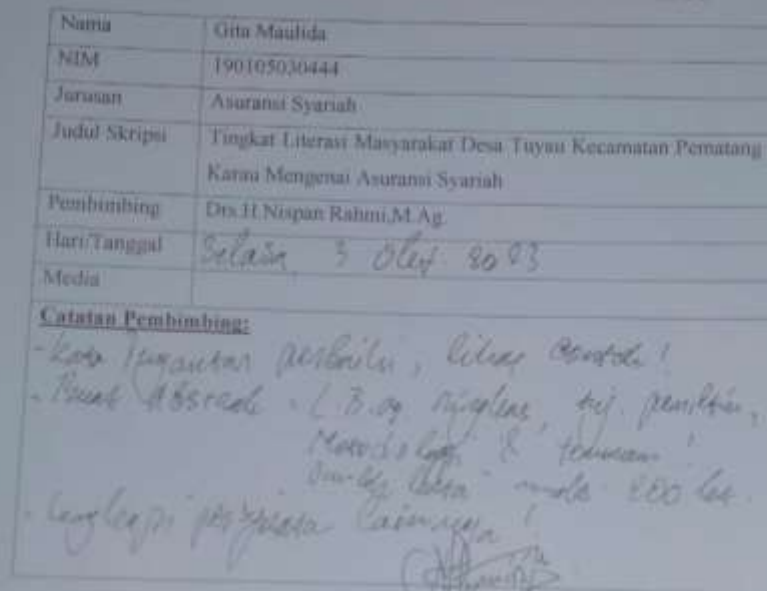 Nama Gita Maulida
NIM 190105030444
Jurusan Asuransi Syariah
Judul Skripsi Tingkat Literasi Masyarakat Desa Tuyau Kecamatan Pematang
Karau Mengenai Asuransi Syariah
Pembimbing Drs.H.Nispan Rahmi,M.Ag.
Hari/Tanggal Selasa, 3 2023
Media
Catatan Pembimbing:
- Kata Pengantar perbaiki, lihat contoh!
- Buat Abstrak penelitian,
Metodologi & temuan!
200
- Lengkapi lainnya!